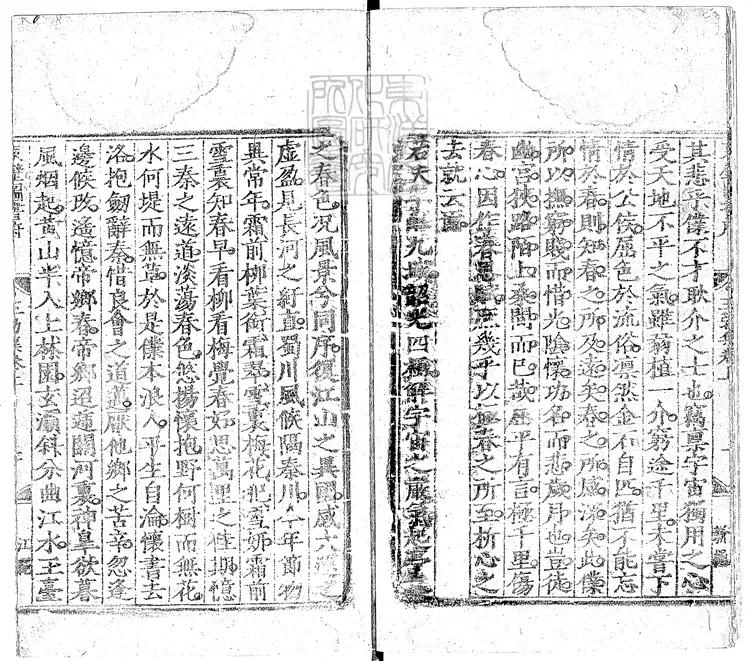 其悲乎僕不才耿介之士也竊稟宇宙獨用之心
受天地不平之氣雖弱植一介窮途千里未嘗下
情於公侯屈色於流俗凛然金石自匹猶不能忘
情於春則知春之所及遠矣春之所感深矣此僕
所以撫窮賤而惜光陰懷功名而悲歲月也豈徒
幽宮狹路陌上桑間而已哉屈平有言極千里傷
春心因作春思賦庶幾乎以極春之所至析心之
去就云爾
若夫年臨九域韶光四極解宇宙之嚴氣起亭
之春色况風景兮同序復江山之異國感六
虛盈見長河之紆直蜀川風候隔秦川今年節物
異常年霜前柳葉銜霜翠雪裏梅花犯雪妍霜前
雪裏知春早看柳看梅覺春好思萬里之佳期憶
三秦之遠道淡蕩春色悠揚懷抱野何樹而無花
水何堤而無草於是僕本浪人平生自淪懷書去
洛抱劒辭秦惜良會之道邁厭他鄉之苦辛忽逢
邊候攺遥憶帝鄉春帝鄉迢遞關河裏神臯欲暮
風烟起黄山半入上林園玄灞斜分曲江水玉臺